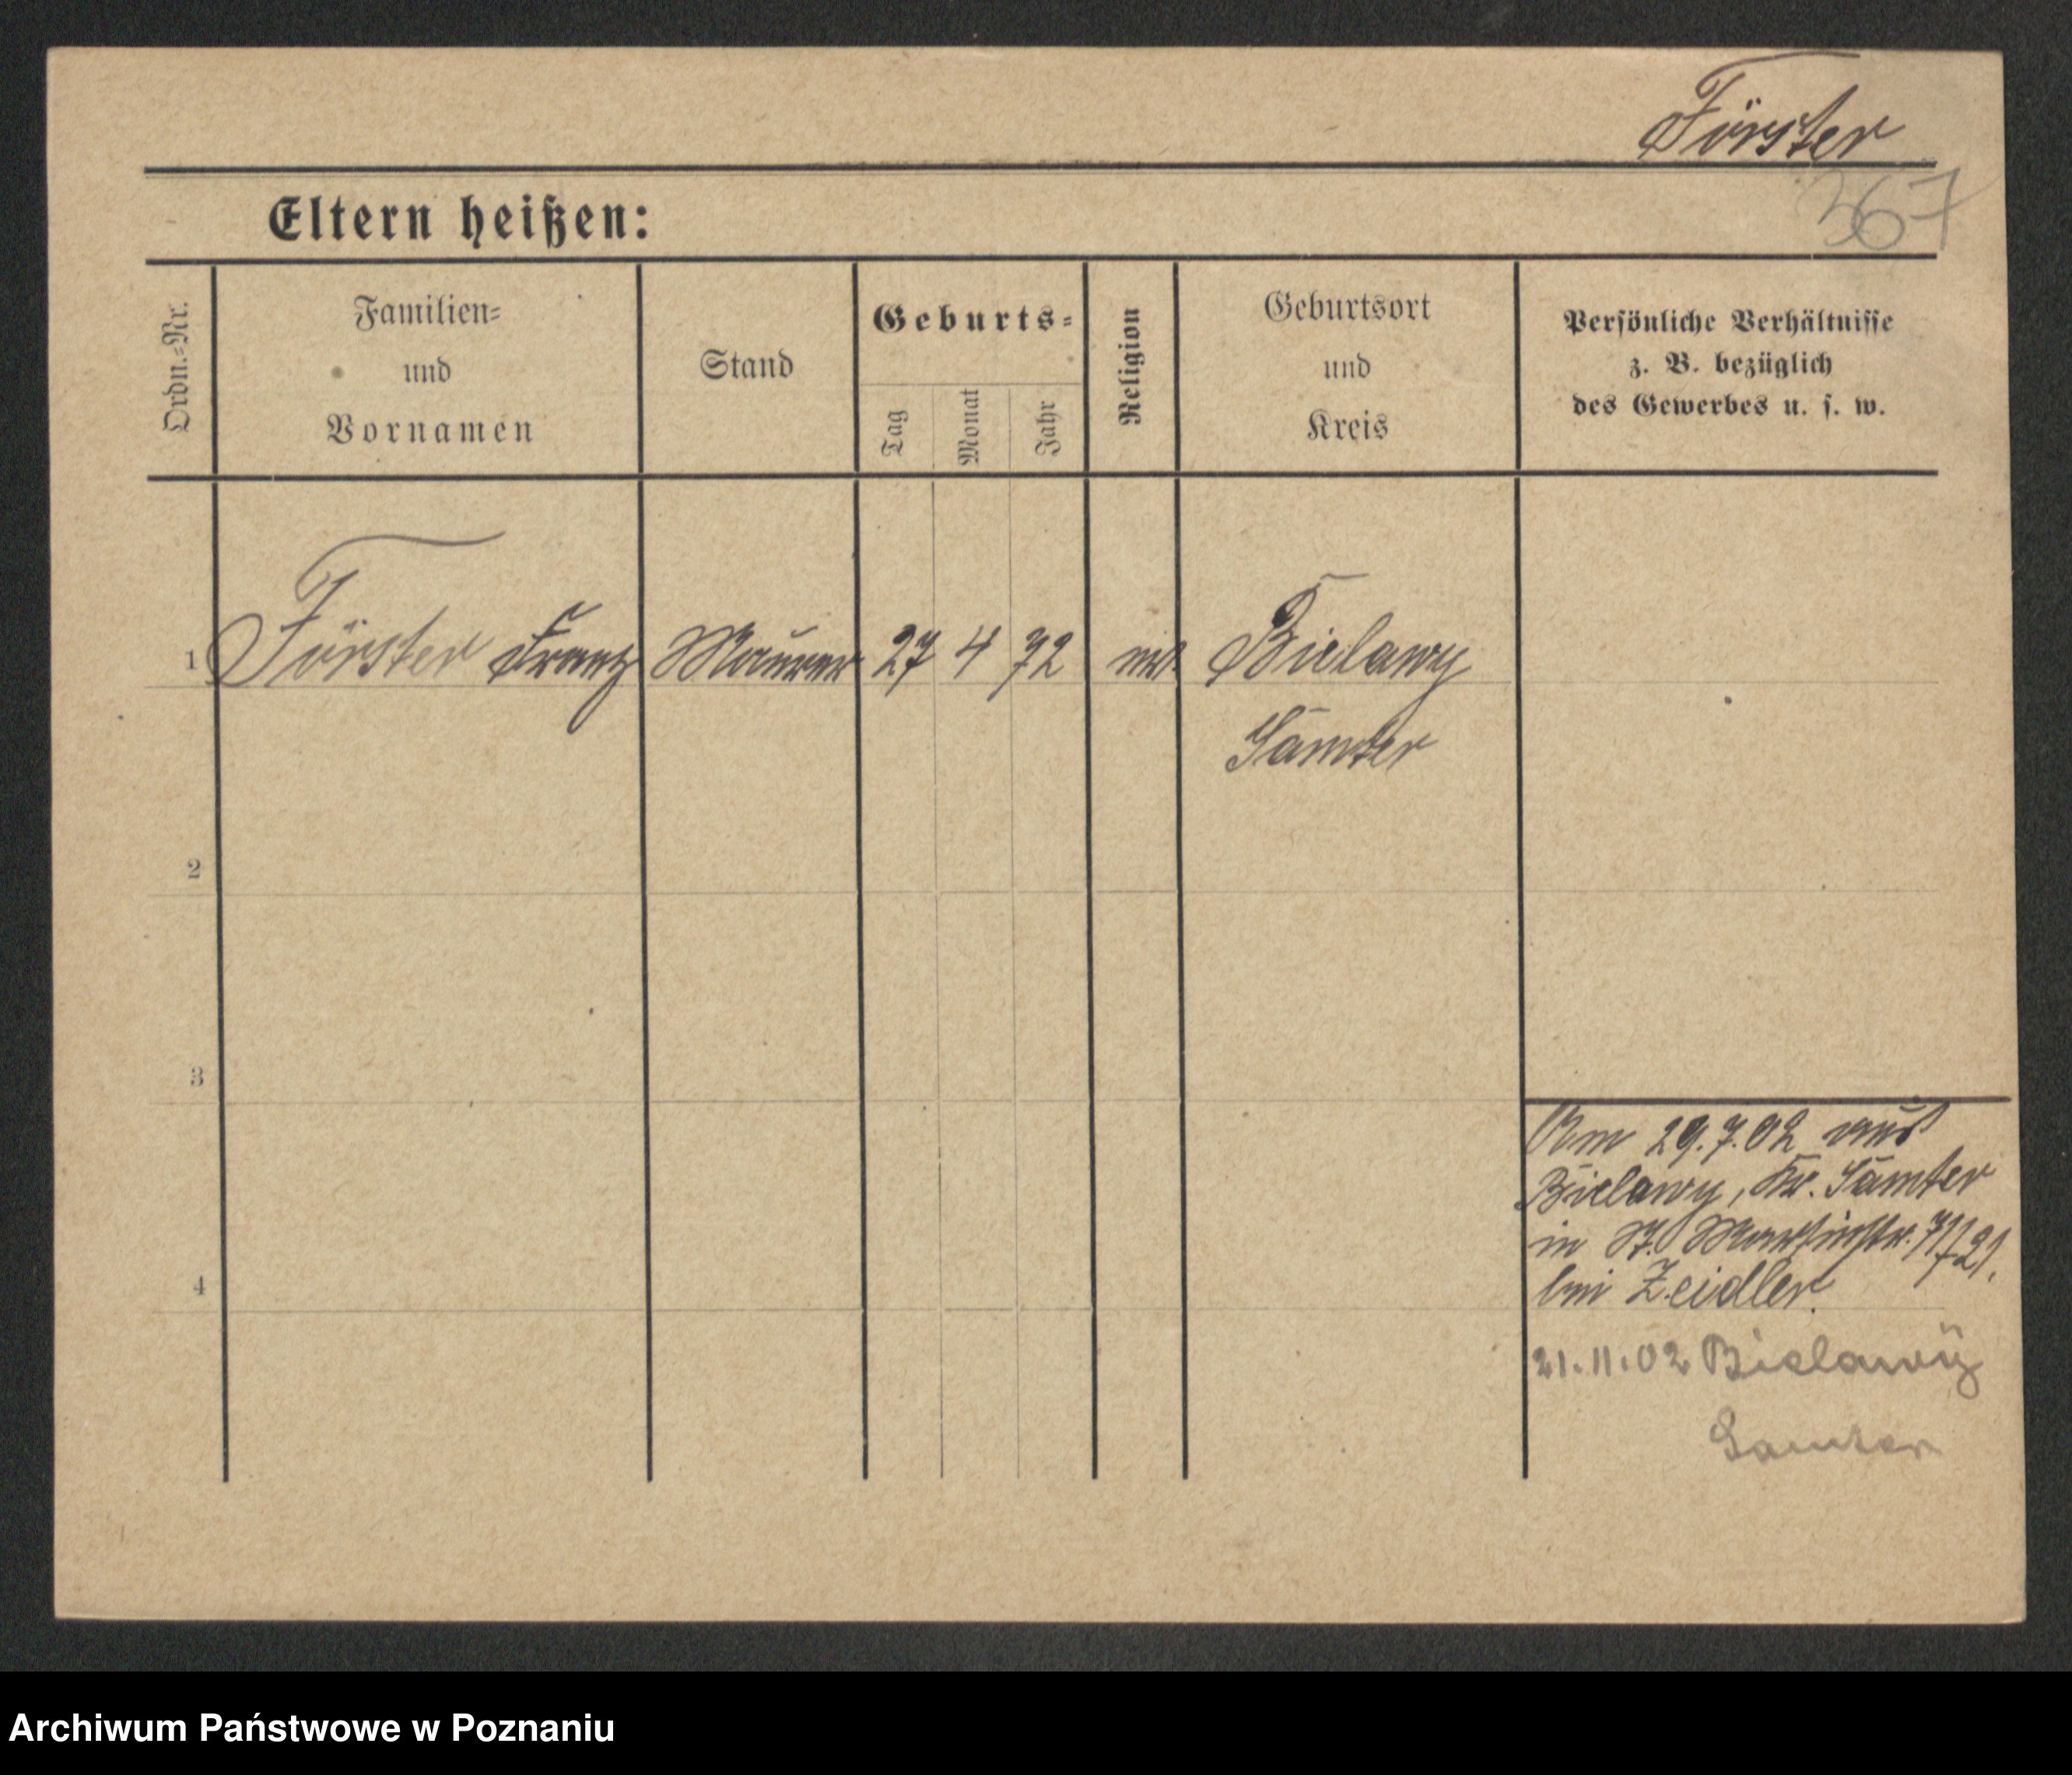 Förster
367
Eltern heißen:
Ordn.-Nr.
Familien-
und
Vornamen
Stand
Geburts-
Tag
Monat
Jahr
Religion
Geburtsort
und
Kreis
Persönliche Verhältnisse
z. B. bezüglich
des Gewerbes u. s. w.
1 Förster Franz Maurer 27 4 72 Bielawy
Samter
2
3
Am 29.7.02 aus
Bielawy, Kr. Samter
in St. Martinstr.
4
bei Zeidler.
21.11.02 Bielawÿ
Samter
Archiwum Państwowe w Poznaniu